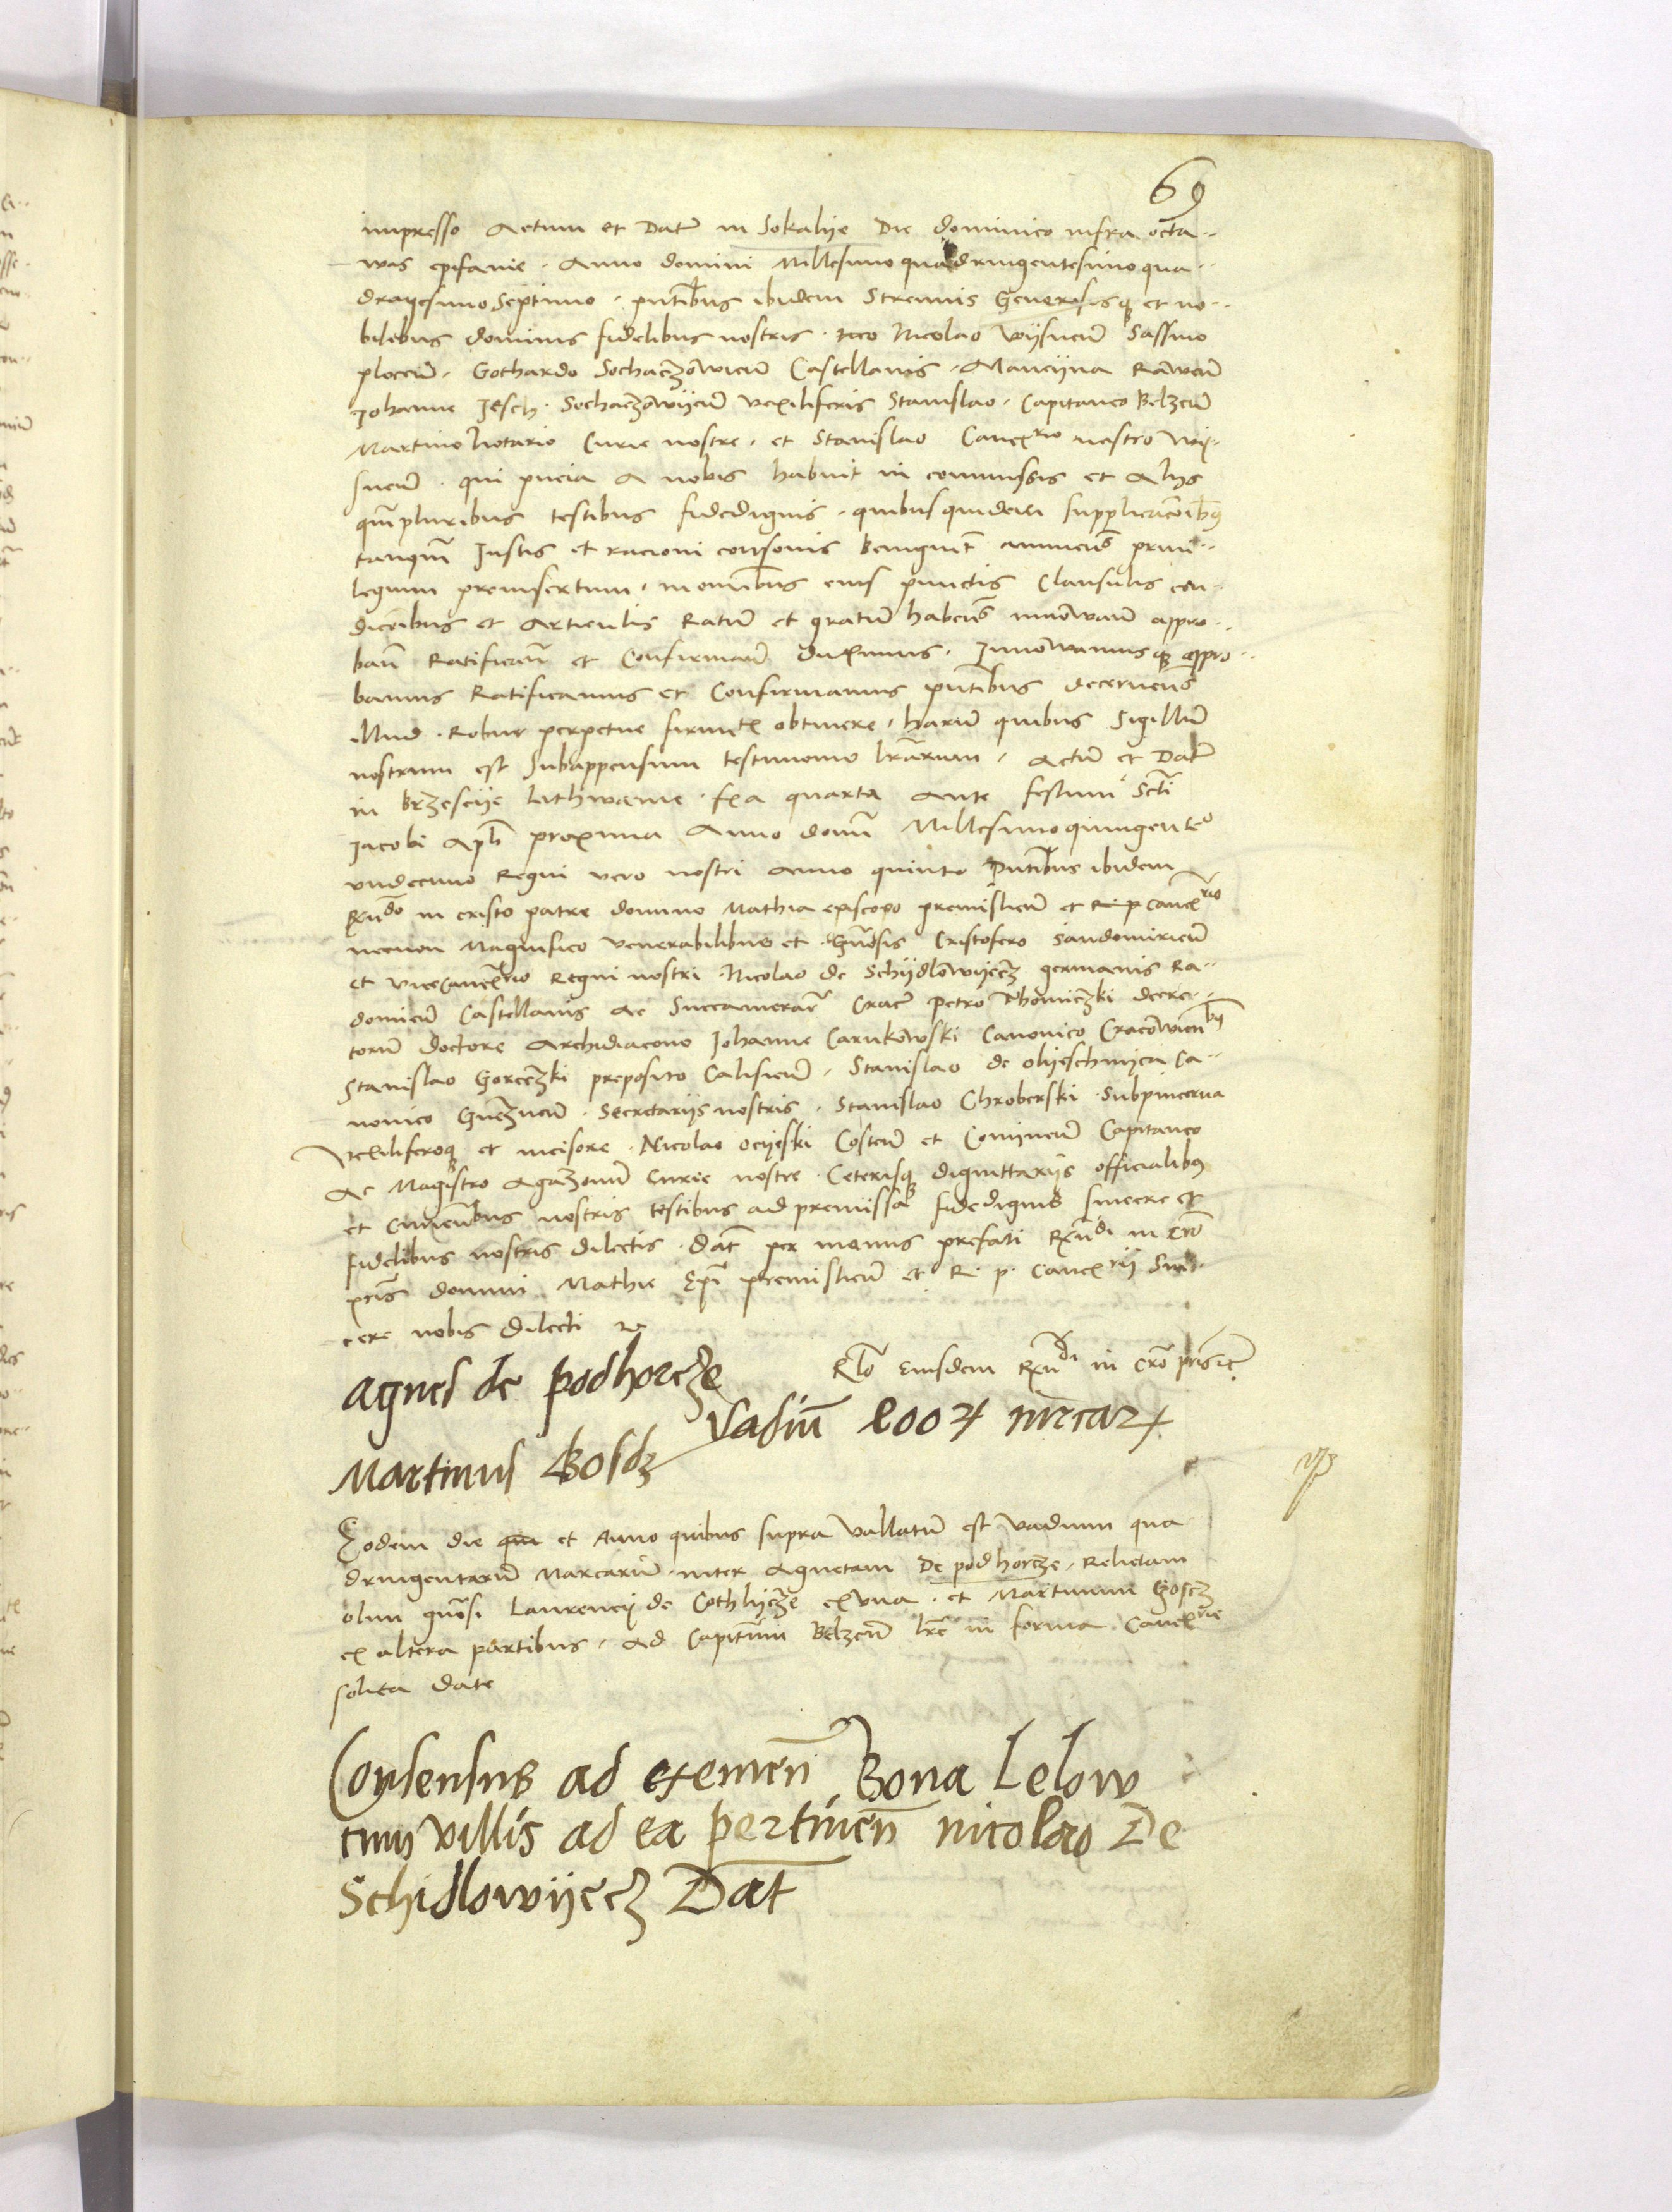 69
impresso Actum et Datū in Sokalije Die dominico infra octa..
vas epifanie. Anno domini Millesimo quadringentesimo qua..
dragesimo Septimo. pntibus ibidem Strenuis Generosisq et no..
bilibus dominis fidelibus nostris. Nicolao Wijsnen Sassino
plocen. Gothardo Sochaczowien Castellanis. Rawen
Johanne Jesch. Sochaczowijen vexiliferis Stanislao. Capitaneo Belzen
Martino Notario Curie nostre. et Stanislao Cancrio nostro Wij
snen. qui pncia a nobis habuit in commissis et Alijs
qmpluribus testibus fidedignis. quibusquidem supplicacōibus
tanqm Justis et racioni consonis benignit annuens privi..
legium preinsertum. in omnibus eius punctis Clausulis con..
dicōibus et Articulis Ratū et gratū habens innowan appro..
ban Ratifican et Confirman duximus. Innowamusq appro..
bamus Ratificamus et Confirmamus pntibus decernens
illud. Robur perpetue firmit obtinere. harū quibus Sigillū
nostrum est Subappensum testimonio lrarum. Actū et Datū
in Brzescije Lithwanie. fia quarta Ante festum Scti
Jacobi Apli proxima Anno domi Millesimo quingenteo
vndecimo Regni vero nostri Anno quinto Pntibus ibidem
Rndo in cristo patre domino Mathia episcopo premislien et R p Cancrio
necnon Magnifico venerabilibus et Gnosis Cristofero Sandomirien
et vicecancrio Regni nostri. Nicolao de Schijdlowijecz germanis Ra..
domien Castellanis Ac Succamerar Crac Petro Thomiczki decre..
torū doctore Archidiacono Johanne Carnkowski Canonico Cracowien
Stanislao Goreczki preposito Calisien. Stanislao de olijeschnijca Ca..
nonico Gneznen. Secretarijs nostris. Stanislao Chroberski Subpincerna
vexiliferoq et incisore. Nicolao ocijeski Costen et Conijnen Capitaneo
Ac Magistro Agazonū Curie nostre. Ceterisq dignittarijs officialibus
et Curiensibus nostris testibus ad premissa fidedignis sincere et
fidelibus nostris dilectis. Dat per manus prefati Rndi in cro
pris domini Mathie Epi premislien et R. p. Cancrij Sin
cere nobis dilecti
Rlo eiusdem Rndi in cro pris
Agnes de podhorcze
Vadiū 400 mrcar
Martinus Boscz
Eodem die et Anno quibus supra vallatū est vadium qua
dringentarū Marcarū. inter Agnetam De podhorcze. Relictam
olim gnosi Laurencij de Cothlijcze ex vna. et Martinum Goscz
ex altera partibus. Ad Capitm Belzen lre in forma Cancrie
solita date
Consensus ad exemen Bona Lelow
cum villis ad ea pertinen nicolao De
Schidlowijecz Dat